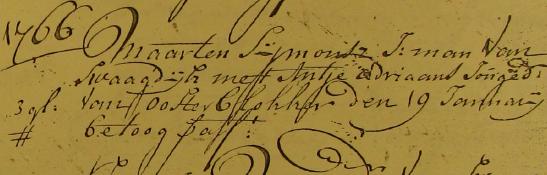 1766 Maarten Sijmonsz J: man Van
Swaagdijk met Antje Adriaans Jonged:
3 gl: Van Ooster Blokker den 19 Januarij
# betoog past: